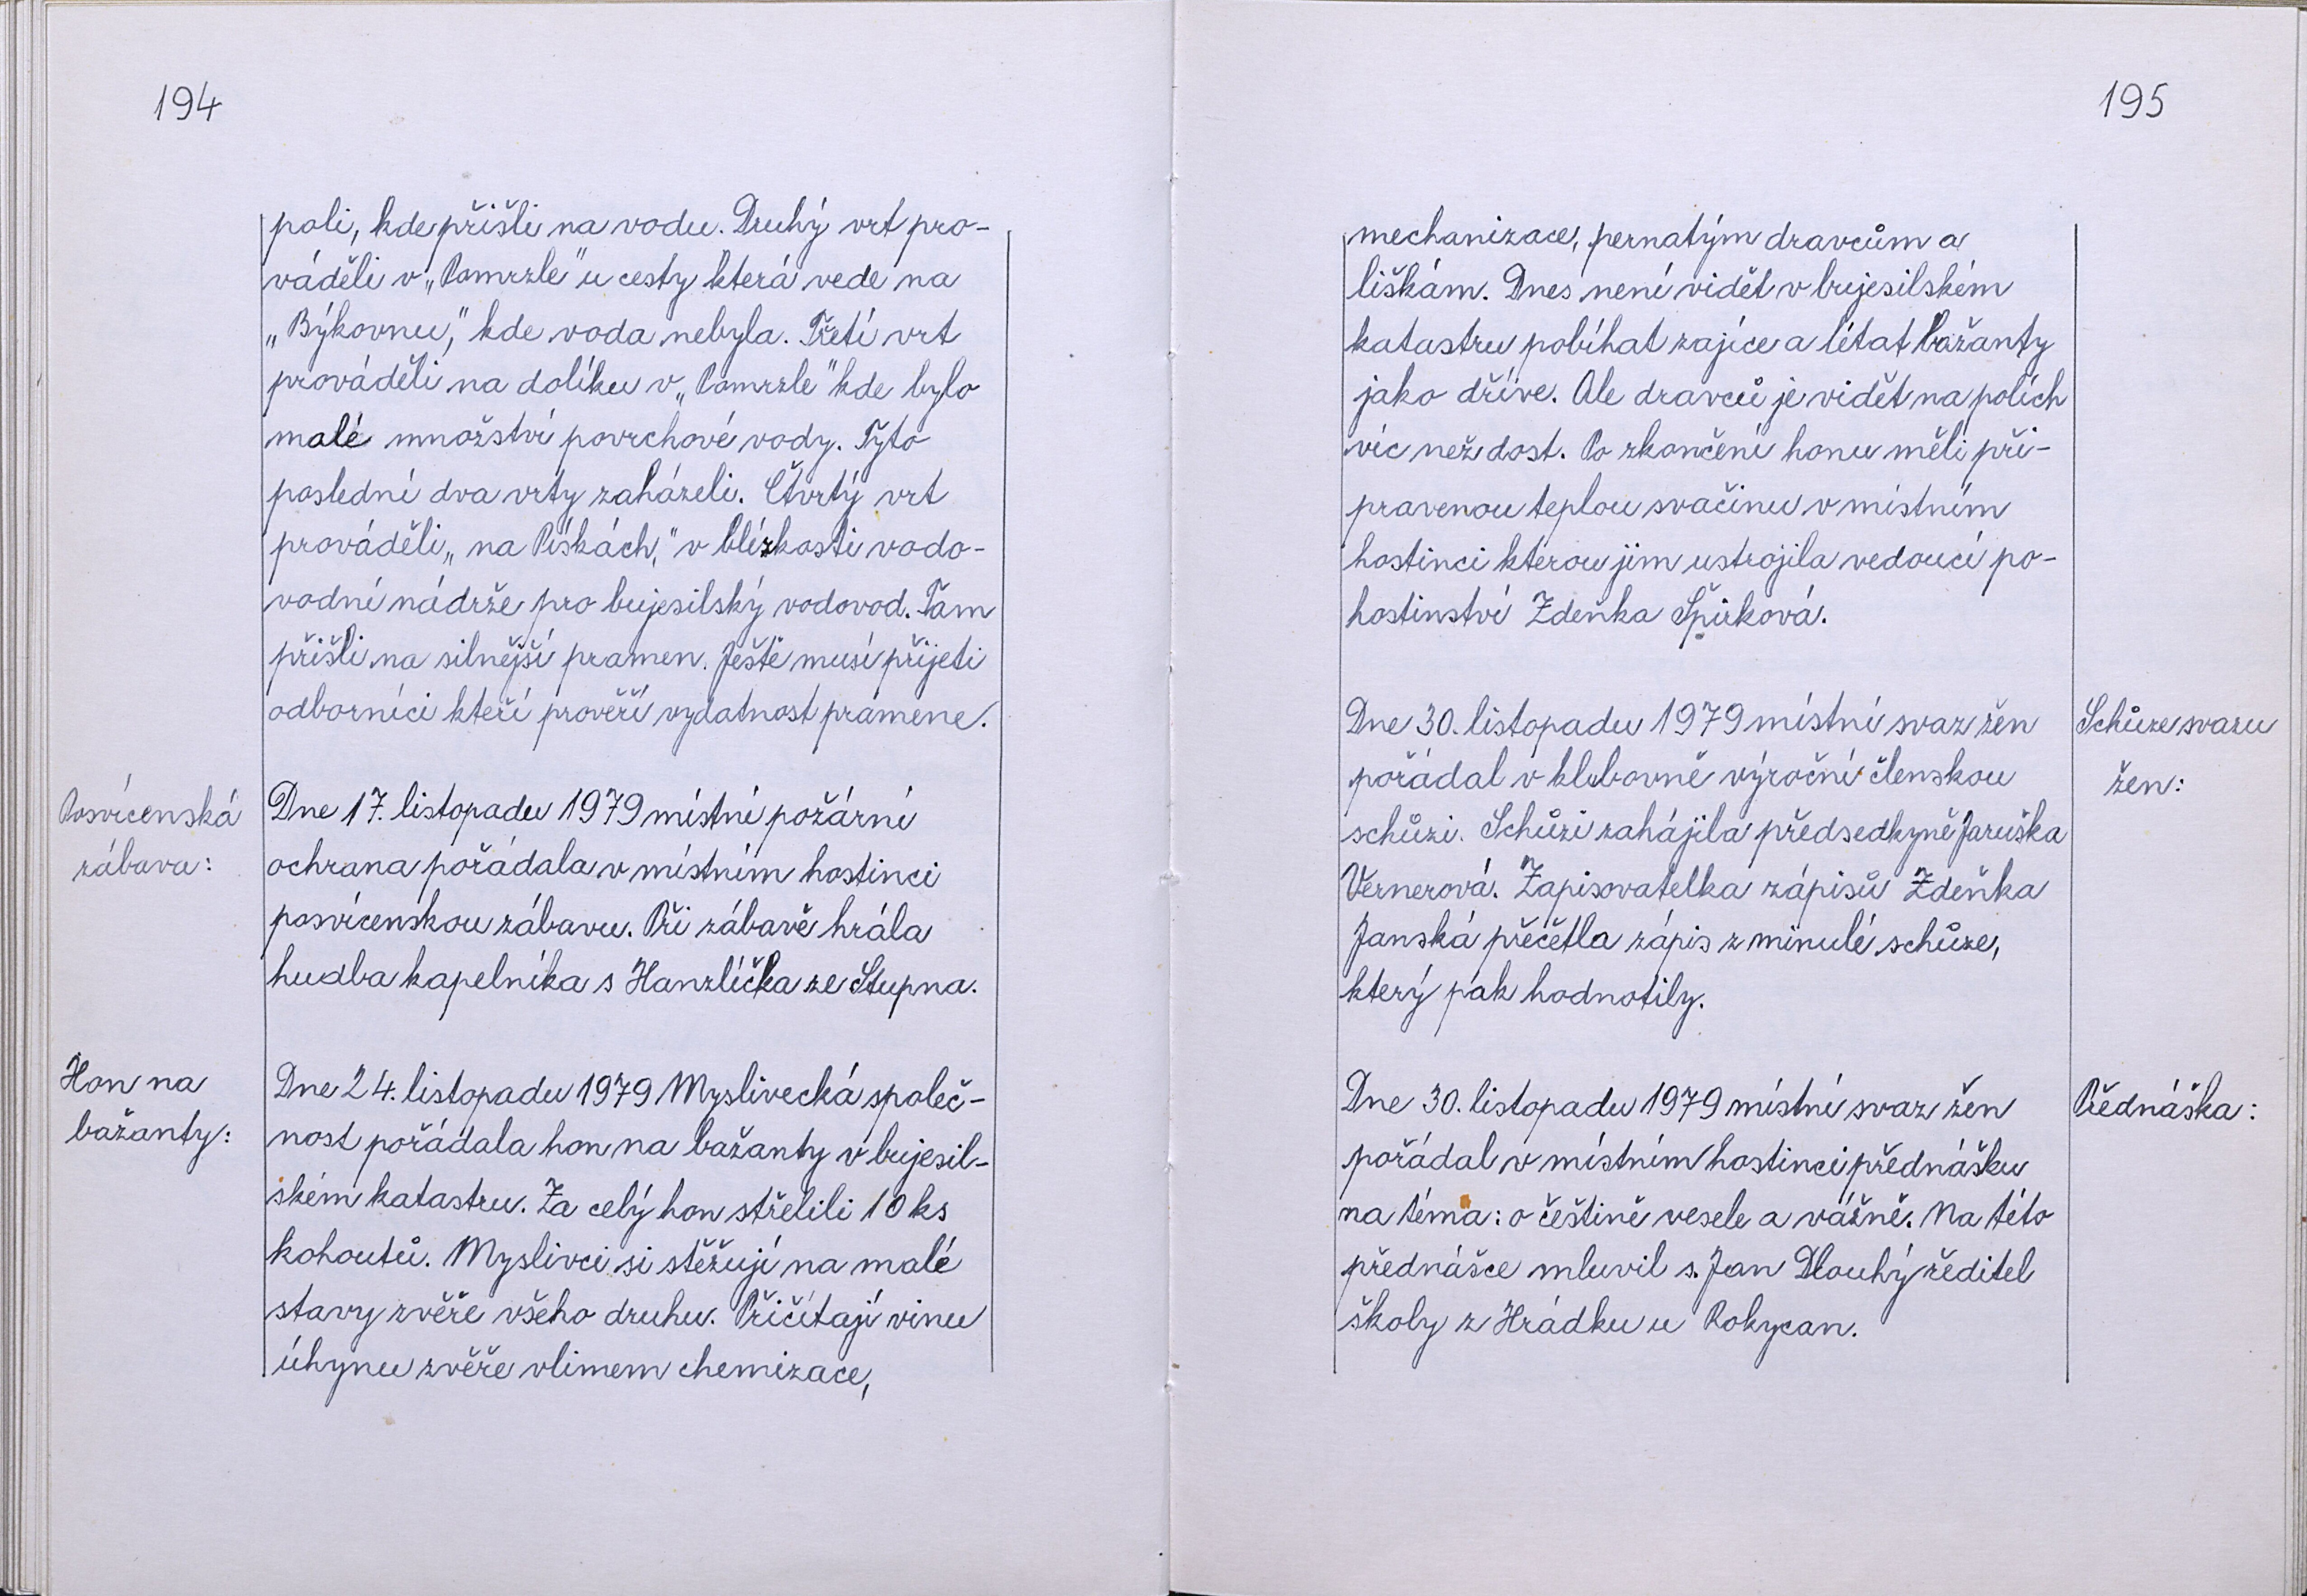 194
poli, kde přišli na vodu. Druhý vrt pro-
váděli v „Pomrzle" u cesty která vede na
„Býkovnu," kde voda nebyla. Třetí vrt
prováděli na dolíku v „Pomrzle" kde bylo
malé množství povrchové vody. Tyto
poslední dva vrty zaházeli. Čtvrtý vrt
prováděli „na Pískách," v blízkosti vodo-
vodní nádrže pro bujesilský vodovod. Tam
přišli na silnější pramen. Ještě musí přijeti
odborníci kteří prověří vydatnost pramene.
Posvícenská
zábava:
Dne 17. listopadu 1979 místní požární
ochrana pořádala v místním hostinci
posvícenskou zábavu. Při zábavě hrála
hudba kapelníka s Hanzlíčka ze Stupna.
Hon na
bažanty:
Dne 24. listopadu 1979 Myslivecká společ-
nost pořádala hon na bažanty v bujesil-
ském katastru. Za celý hon střelili 10 ks
kohoutů. Myslivci si stěžují na malé
stavy zvěře všeho druhu. Přičítají vinu
úhynu zvěře vlimem chemizace,
195
mechanizace, pernatým dravcům a
liškám. Dnes není vidět v bujesilském
katastru pobíhat zajíce a létat bažanty
jako dříve. Ale dravců je vidět na polích
víc než dost. Po zkončení honu měli při-
pravenou teplou svačinu v místním
hostinci kterou jim ustrojila vedoucí po-
hostinství Zdeňka Špirková.
Dne 30. listopadu 1979 místní svaz žen
pořádal v klubovně výroční členskou
schůzi. Schůzi zahájila předsedkyně Jaruška
Vernerová. Zapisovatelka zápisů Zdeňka
Janská přečetla zápis z minulé schůze,
který pak hodnotily.
Schůze svazu
žen:
Dne 30. listopadu 1979 místní svaz žen
pořádal v místním hostinci přednášku
na téma: o češtině vesele a vážně. Na této
přednášce mluvil s. Jan Dlouhý ředitel
školy z Hrádku u Rokycan.
Přednáška: